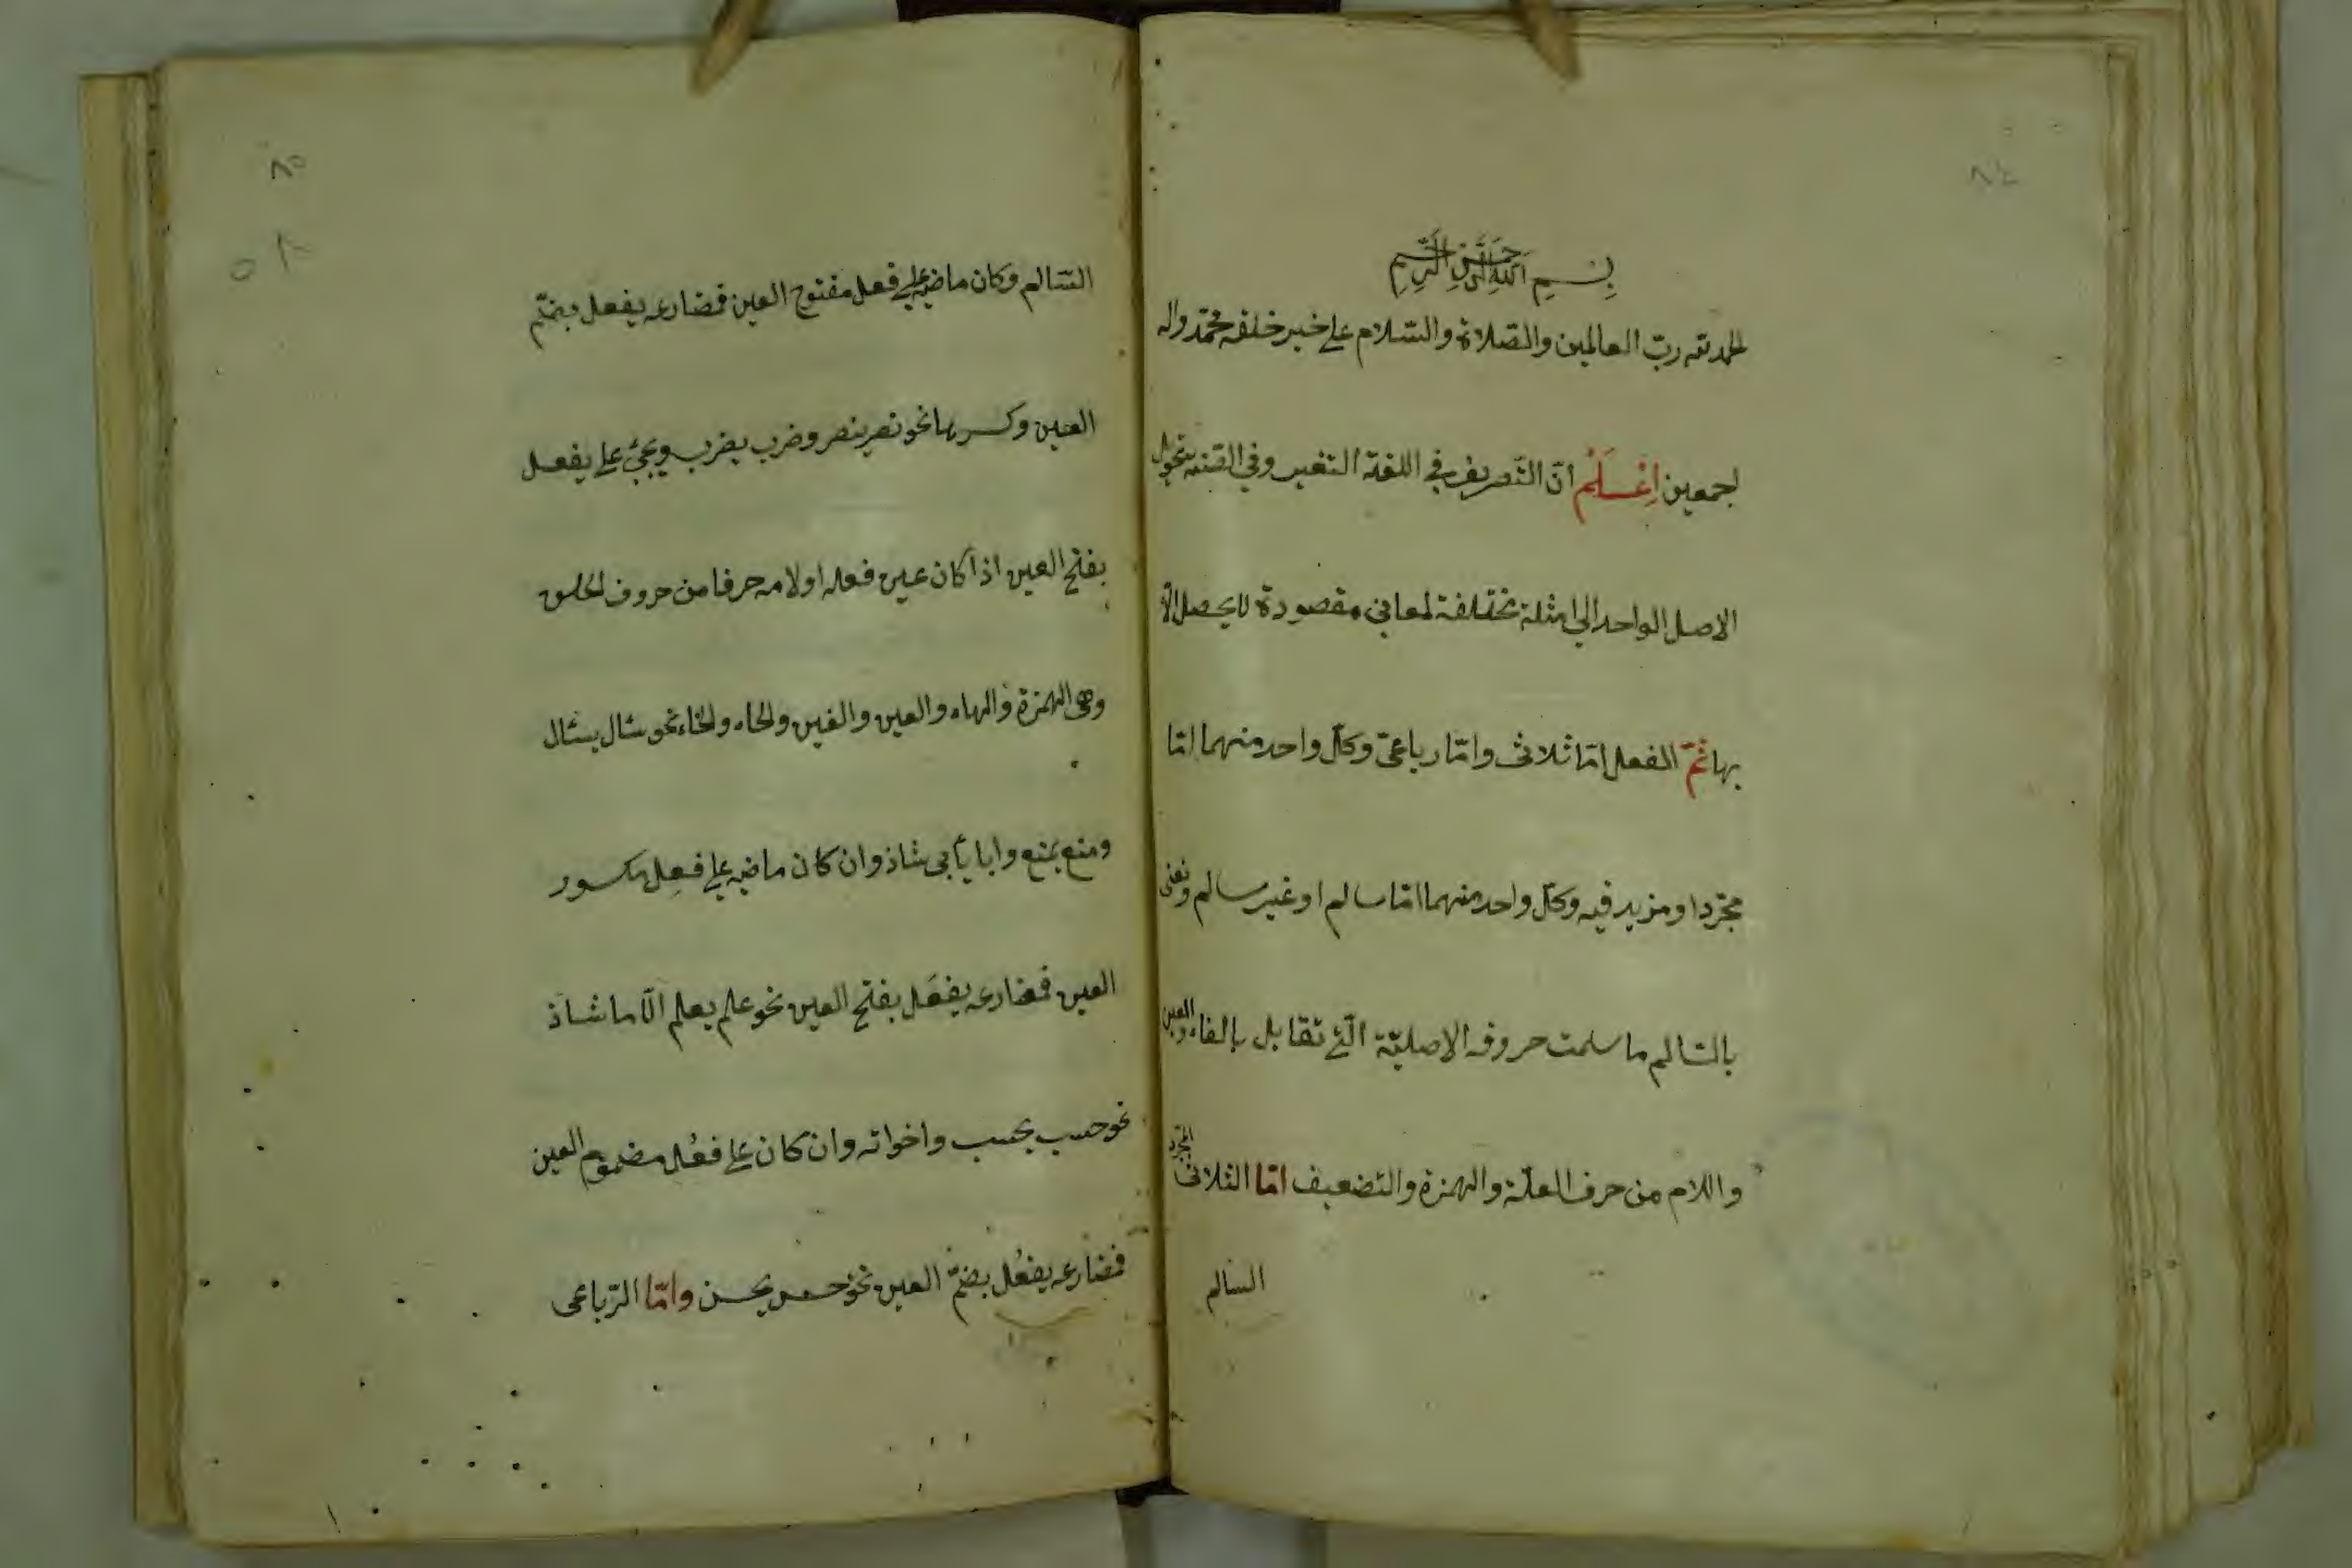 ٨٤
بِسْمِ اللهِ الرَّحْمَنِ الرَّحِيمِ
الحمد لله ربّ العالمين والصّلاة والسّلام على خير خلقه محمّد واله
اجمعين اِعْلَمْ انّ التّصريف في اللغة التغيير وفي الصّنعة تحويل
الاصل الواحد الى امثلة مختلفة لمعاني مقصودة لا يحصل الّا
بها ثمّ الفعل امّا ثلاثى وامّا رباعىّ وكلّ واحد منهما امّا
مجرّد او مزيد فيه وكلّ واحد منهما امّا سالم او غير سالم ونعنى
بالسّالم ما سلمت حروفه الاصليّة الّتي تقابل بالفاء والعين
واللام من حرف العلّة والهمزة والتضعيف امّا الثلاثى المجرّد
السالم
٨٥
٨٥
السّالم وكان ماضيه على فعل مفتوح العين فمضارعه يفعل بضمّ
العين وكسرها نحو نصر ينصر وضرب يضرب ويجئ على يفعل
بفتح العين اذا كان عين فعله او لامه حرفا من حروف الحلق
وهى الهمزة والهاء والعين والغين والحاء والخاء نحو سئال يسئال
ومنع يمنع وابا يأبى شاذ وان كان ماضيه على فعِل مكسور
العين فمضارعه يفعَل بفتح العين نحو علم يعلم الّا ما شاذ
نحو حسب يحسب واخواته وان كان على فعُل مضموم العين
فمضارعه يفعُل بضمّ العين نحو حسن يحسن وامّا الرّباعى